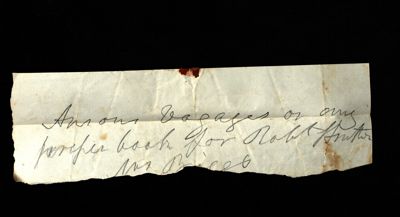 Ansons Voyages or any
proper book for Robt Hunter
Mr Rices